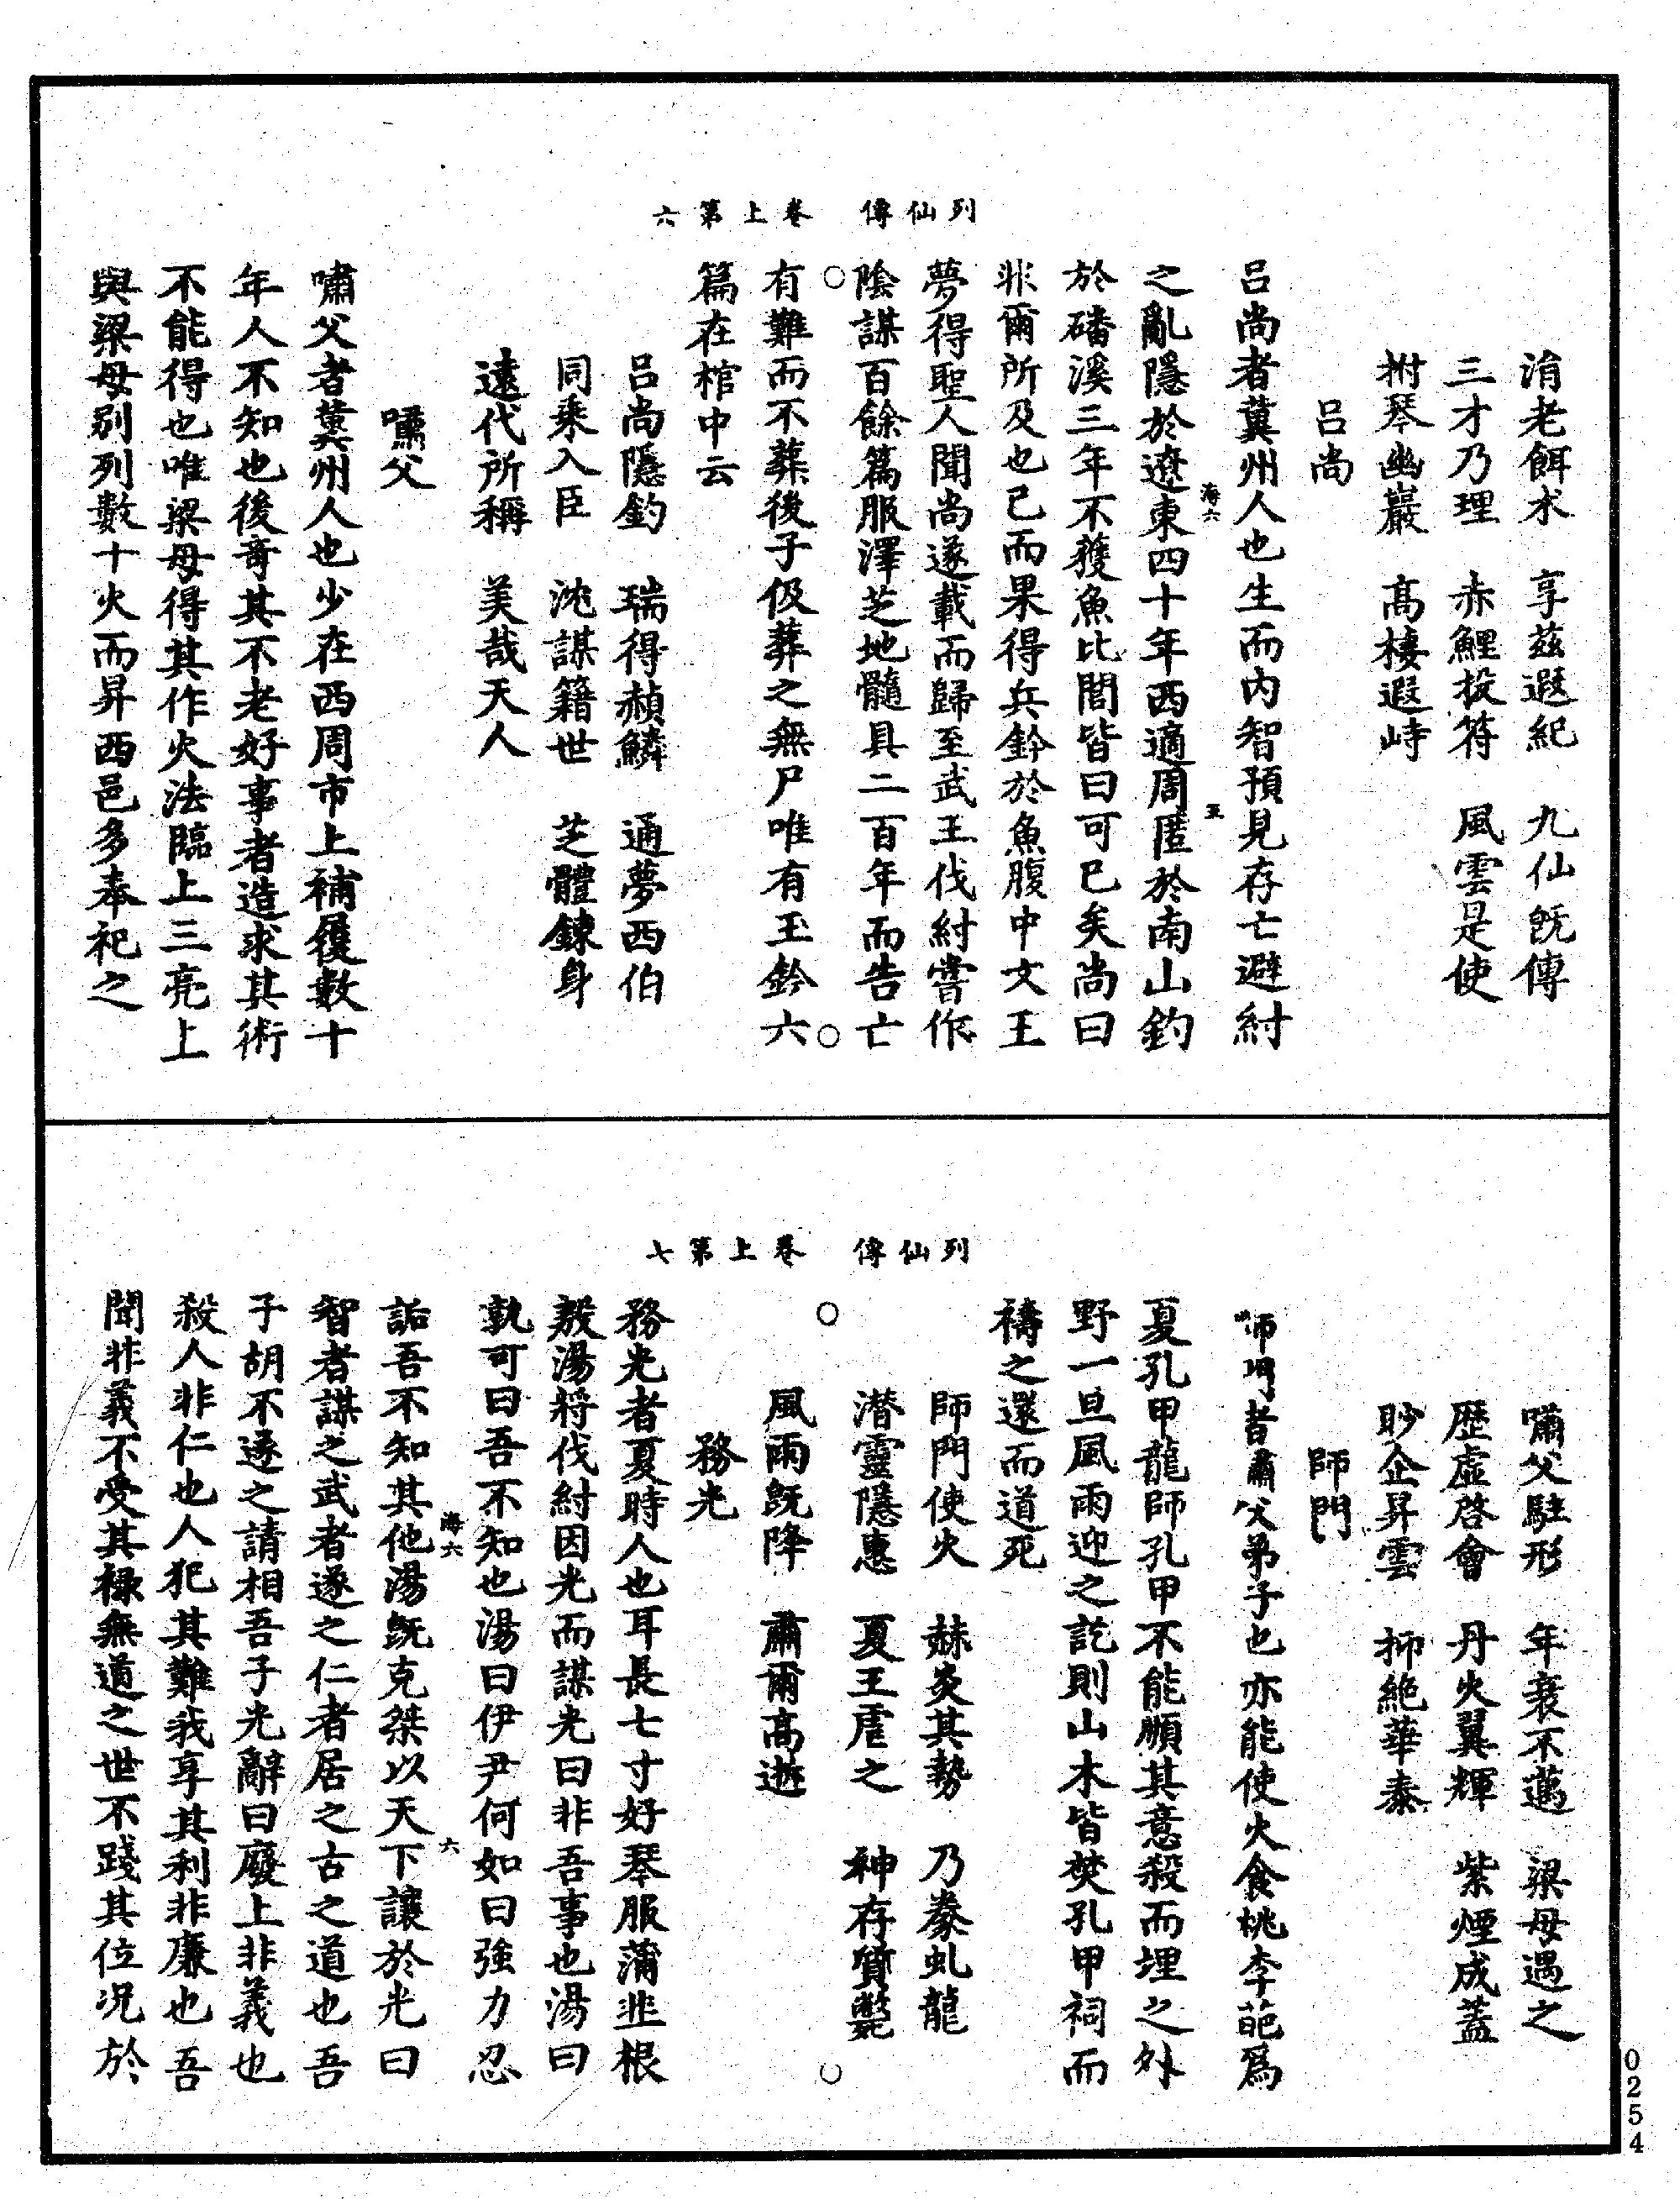 列仙傳　卷上第六
涓老餌术　享茲遐紀　九仙旣傳
三才乃理　赤鯉投符　風雲是使
拊琴幽巖　高棲遐峙
呂尚
呂尚者冀州人也生而內智預見存亡避紂
之亂隱於遼東四十年西適周匿於南山釣
海六
至
於磻溪三年不獲魚比閭皆曰可已矣尚曰
非爾所及也已而果得兵鈐於魚腹中文王
夢得聖人聞尚遂載而歸至武王伐紂嘗作
陰謀百餘篇服澤芝地髓具二百年而告亡
有難而不葬後子伋葬之無尸唯有玉鈐六
篇在棺中云
呂尚隱釣　瑞得赬鱗　通夢西伯
同乘入臣　沈謀籍世　芝體鍊身
遠代所稱　美哉天人
嘯父
嘯父者冀州人也少在西周市上補履數十
年人不知也後奇其不老好事者造求其術
不能得也唯梁母得其作火法臨上三亮上
與梁母別列數十火而昇西邑多奉祀之
列仙傳　卷上第七
嘯父駐形　年衰不邁　梁母遇之
歷虛啓會　丹火翼輝　紫煙成蓋
眇企昇雲　抑絶華泰
師門
師門者嘯父弟子也亦能使火食桃李葩爲
夏孔甲龍師孔甲不能順其意殺而埋之外
野一旦風雨迎之訖則山木皆焚孔甲祠而
禱之還而道死
師門使火　赫炎其勢　乃豢虬龍
潛靈隱惠　夏王虐之　神存質斃
風雨旣降　肅爾高逝
務光
務光者夏時人也耳長七寸好琴服蒲韭根
殷湯將伐紂因光而謀光曰非吾事也湯曰
孰可曰吾不知也湯曰伊尹何如曰強力忍
海六
六
詬吾不知其他湯旣克桀以天下讓於光曰
智者謀之武者遂之仁者居之古之道也吾
子胡不遂之請相吾子光辭曰廢上非義也
殺人非仁也人犯其難我享其利非廉也吾
聞非義不受其祿無道之世不踐其位况於
0254